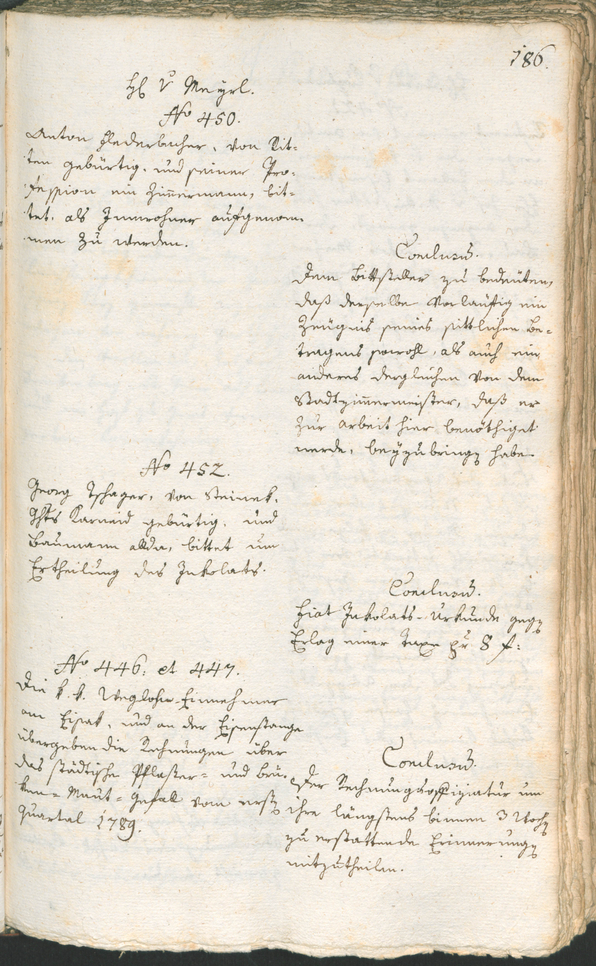 186.
H: v Meyrl.
No 450.
Anton Federbacher, von Rit-
ten gebürtig, und seiner Pro-
fession ein Zimmermann, bit-
tet, als Innwohner aufgenom-
men zu werden.
Conclusum.
Dem Bittsteller zu bedeuten,
daß derselbe vorläufig ein
Zeugnis seines sittlichen Be-
tragens sowohl, als auch ein
anderes dergleichen von dem
Stadtzimmermeister, daß er
zur arbeit hier benöthiget
werde, beyzubringen habe.
No 452.
Georg Tschager, von Steinek,
Ghts Karneid gebürtig, und
Baumann allda, bittet um
Ertheilung des Inkolats.
Conclusum.
Fiat Inkolats-Urkunde gegen
Erlag einer Taxe pr 8 f:
No 446: et 447.
Die k. k. Weglohn-Einnehmer
am Eisak, und an der Eisenstange
übergeben die Rechnungen über
das städtische Pflaster- und Brü-
ken-Maut-Gefäll vom ersten
Quartal 1789.
Conclusum.
Der Rechnungsoffiziatur um
ihre längstens binnen 3 Wochen
zu erstattende Erinnerungen
mitzutheilen.